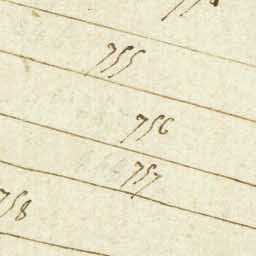 755
756
757
758